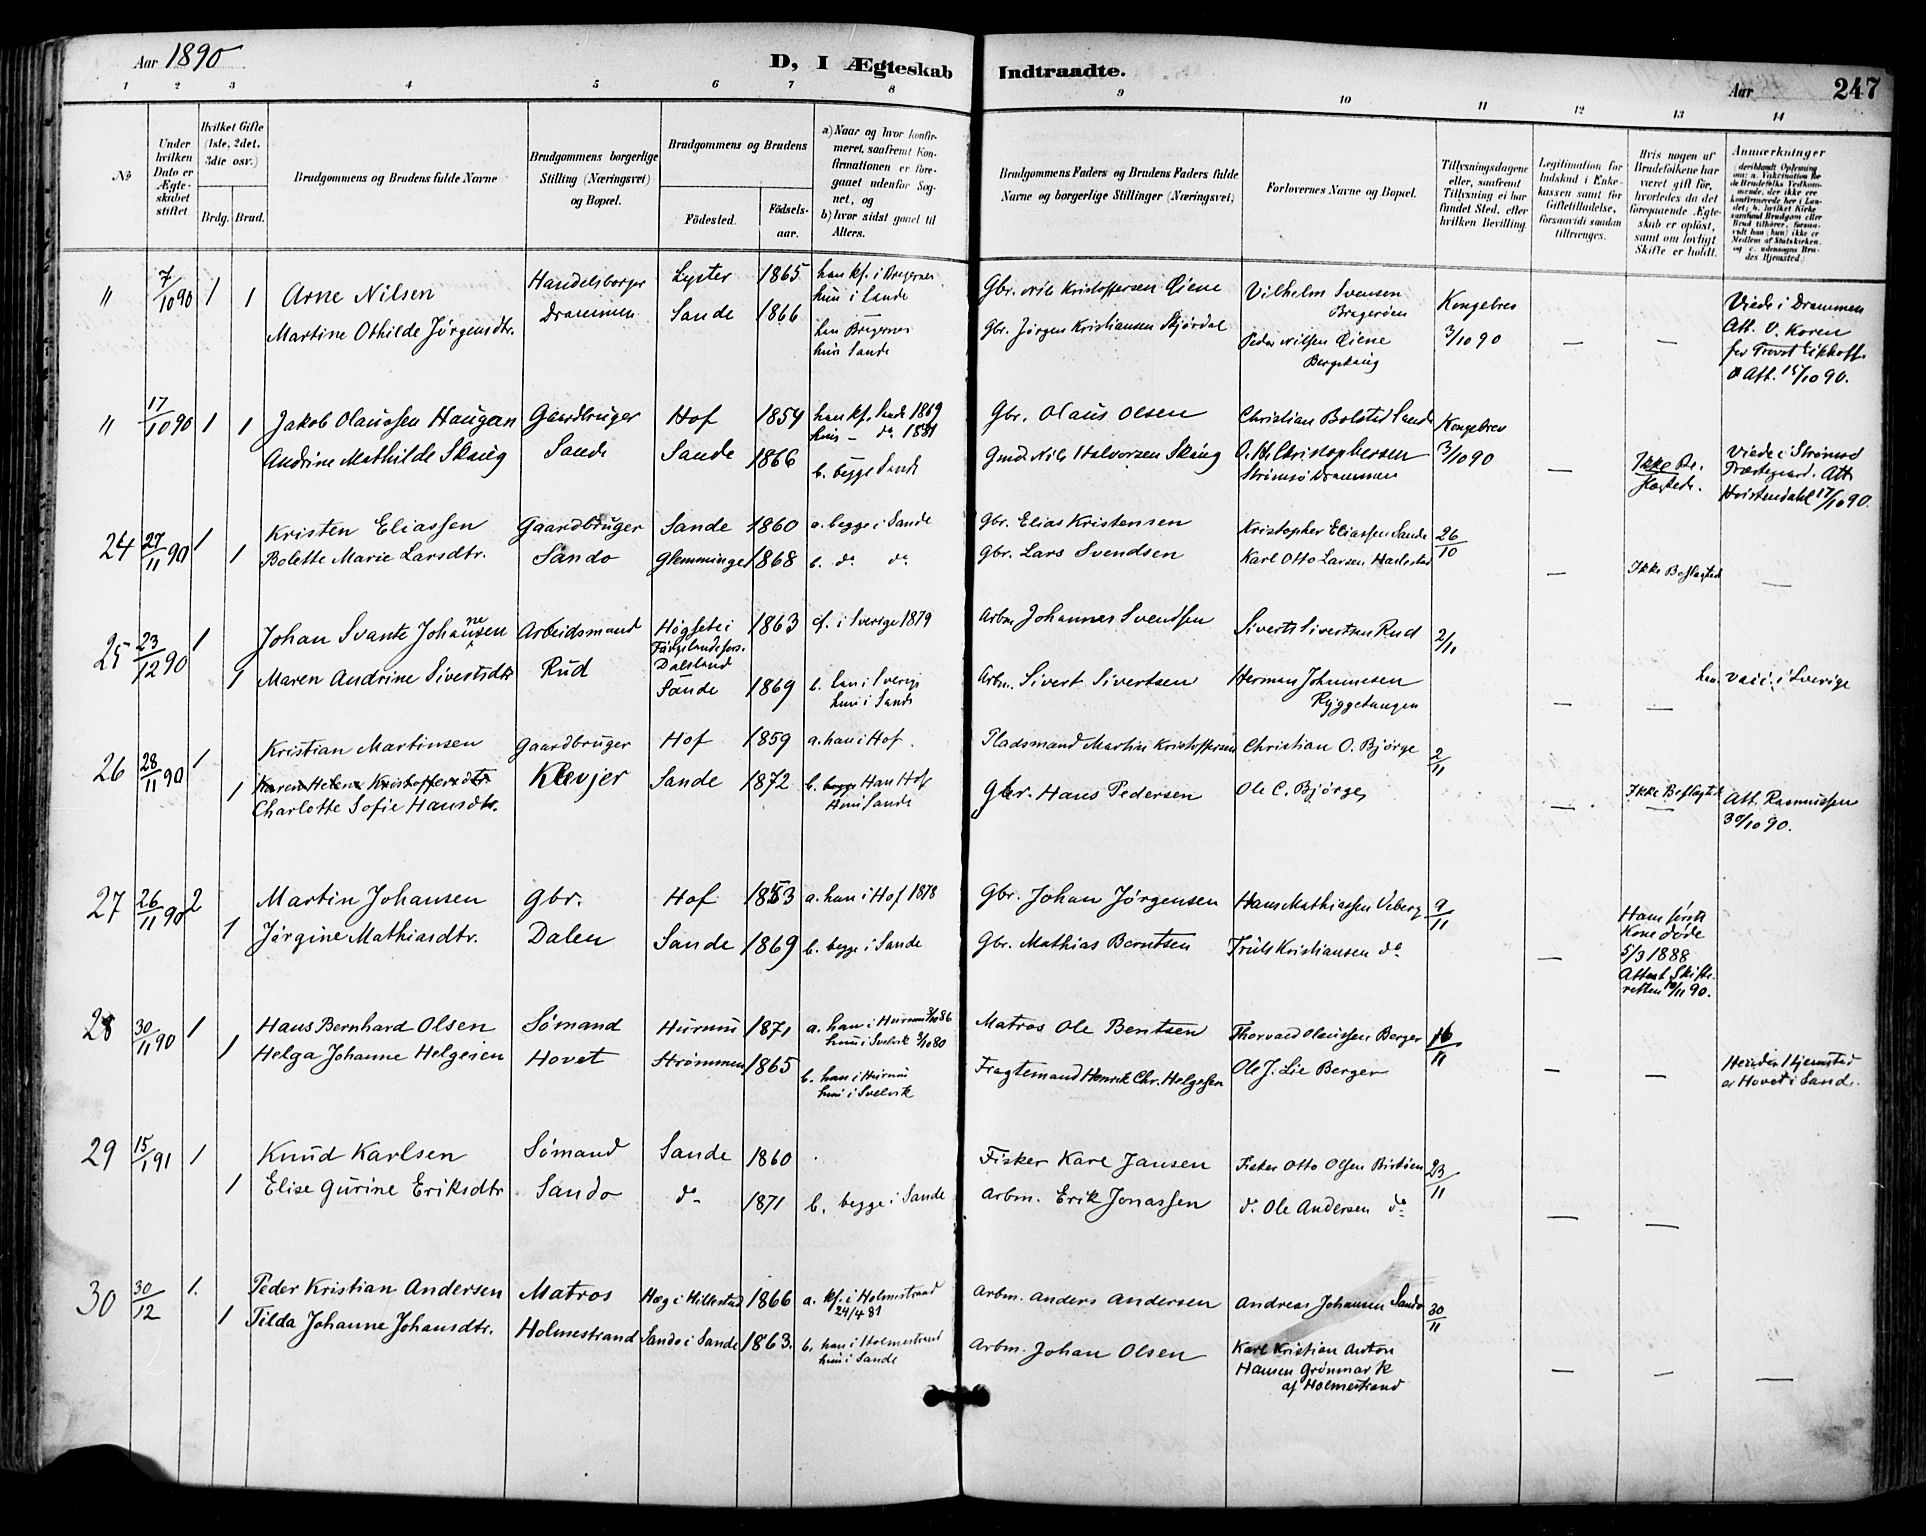 Aar 1890
D, I Ægteskab Indtraadte.
Aar 247
1 2 3 4 5 6 7 8 9 10 11 12 13 14
No
Under hvilken Dato er Ægteskabet stiftet
Hvilket Gifte (1ste, 2det, 3die osv.)
Brdg. Brud.
Brudgommens og Brudens fulde Navne
Brudgommens borgerlige Stilling (Næringsvei) og Bopæl.
Brudgommens og Brudens
Födested. Födsels-aar.
a) Naar og hvor konfirmeret, saafremt Konfirmationen er foregaaet udenfor Sognet, og
b) hvor sidst gaaet til Alters.
Brudgommens Faders og Brudens Faders fulde Navne og borgerlige Stillinger (Næringsvei)
Forlovernes Navne og Bopæl.
Tillysningsdagene eller, saafremt Tillysning ei har fundet Sted, efter hvilken Bevilling.
Legitimation for Indskud i Enkekassen samt for Giftetilladelse, forsaavidt saadan tiltrænges.
Hvis nogen af Brudefolkene har været gift för, hvorledes da det foregaaende Ægteskab er oplöst, samt om lovligt Skifte er holdt.
Anmerkninger
" 7/10 90 1 1 Arne Nilsen Handelsborger Lyster 1865 han kf. i Bragernes Gbr. Nils Kristoffersen Eiene Vilhelm Svensen Kongebrev Viede i Drammen
hun i Sande Bragerøen Att. V. Koren
Martine Othilde Jørgensdtr. Drammen Sande 1866 han Bragernes Gbr. Jørgen Kristiansen Skjørdal Peder Nilsen Eiene 3/10 90 — — for Provst Eckhoff
hun Sande Att. 15/10 90.
" 17/10 90 1 1 Jakob Olaussen Haugan Gaardbruger Hof 1854 han kf. Sande 1869 Gbr. Olaus Olsen Christian Bolsted Sande Kongebrev
hun - do 1881
Andrine Mathilde Skaug Sande Sande 1866 b. begge Sande Gmd Nils Halvorsen Skaug Christophersen 3/10 90 — Ikke Be- Viede i Strømsø
Strømsø Drammen slægtede. Præstegaard. Att
Hvistendahl 17/10 90.
24 27/11 90 1 Kristen Eliassen Gaardbruger Sande 1860 a. begge i Sande Gbr. Elias Kristensen Kristopher Eliassen Sande 26/10
1 Bolette Marie Larsdtr. Sando Glemminge 1868 b. do do Gbr. Lars Svendsen Karl Otto Larsen — Ikke Beslægted —
25 23/12 90 1 Johan Svante Johannesen Arbeidsmand Högsete i 1863 cf. i Sverige 1879 Arbm Johannes Svendsen Sivert Sivertsen Rud 2/11
Färgelanda
Dalsland
1 Maren Andrine Sivertsdtr Rud Sande 1869 b. han i Sverige Arbm. Sivert Sivertsen Herman Johannesen han vacc. i Sverige
hun i Sande Ryggetangen — —
26 28/11 90 1 Kristian Martinsen Gaardbruger Hof 1859 a. han i Hof. Pladsmand Martin Kristoffersen Christian O. Bjørge 2/11
1 Karen Helene Kristoffersdtr Klevjer Sande 1872 b. begge Han Hof Gbr. Hans Pedersen Ole C. Bjørge — Ikke Beslægted Att. Rasmussen
Charlotte Sofie Hansdtr. Hun Sande — 30/10 90.
27 26/11 90 2 Martin Johansen Gbr. Hof 1853 a. han i Hof 1878 Gbr. Johan Jørgensen Hans Mathiassen Veberg 9/11 Hans første
1 Jørgine Mathiasdtr. Dalen Sande 1869 b. begge i Sande Gbr. Mathias Berntsen Truls Kristiansen do — Kone døde
5/3 1888
Attest Skifte-
retten 10/11 90.
28 30/11 90 1 Hans Bernhard Olsen Sømand Hurum 1871 a. han i Hurum 3/10 86 Matros Ole Bentsen Thorvard Olaussen Berger 16/11
hun i Svelvik 3/10 80
1 Helga Johanne Helgesen Hovet Strømmen 1865 b. han i Hurum Fragtemand Henrik Chr. Helgesen Ole J. Lie Berger — — Hendes Hjemsted
hun i Svelvik er Hovet i Sande.
29 15/1 91 1 Knud Karlsen Sømand Sande 1860 Fisker Karl Jansen Fisker Otto Olsen Birtöien 23/11
1 Elise Gurine Eriksdtr Sando do 1871 b. begge i Sande Arbm. Erik Jonassen d. Ole Andersen do — —
30 30/12 1. Peder Kristian Andersen Matros Hæg i Hillestad 1866 a. kf. i Holmestrand Arbm. Anders Andersen Andreas Johansen Sando 30/11
24/4 81
1 Tilda Johanne Johansdtr. Holmestrand Sando i Sande 1863. b. han i Holmestrand Arbm. Johan Olsen Karl Kristian Anton
hun i Sande Hansen Grønmark — — —
af Holmestrand